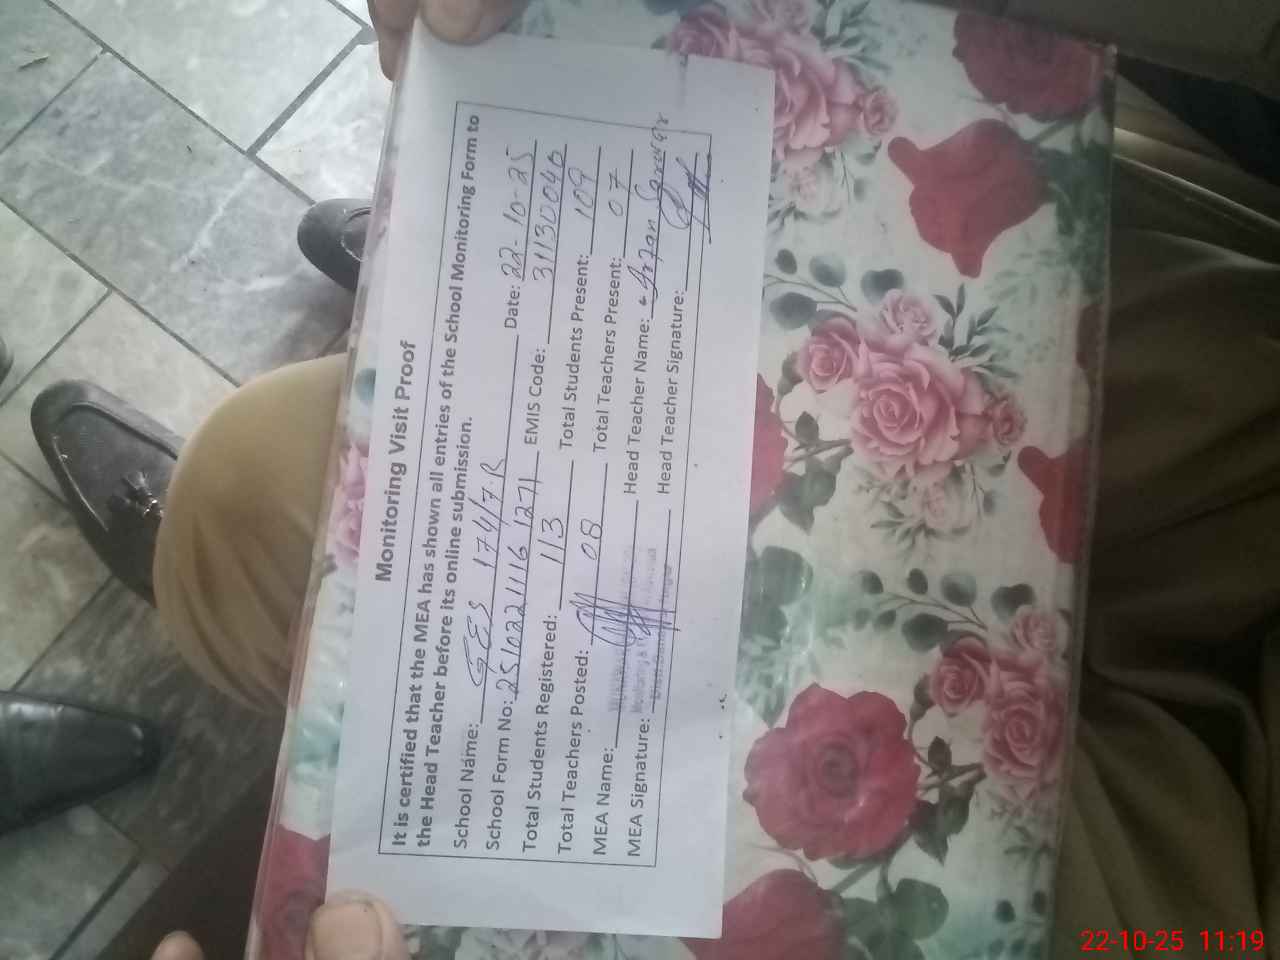 Monitoring Visit Proof
It is certified that the MEA has shown all entries of the School Monitoring Form to
the Head Teacher before its online submission.
School Name: GES 174/7.R Date: 22-10-25
School Form No: 2510221116 1271 EMIS Code: 31130040
Total Students Registered: 113 Total Students Present: 109
Total Teachers Posted: 08 Total Teachers Present: 07
MEA Name: Head Teacher Name:
MEA Signature: Head Teacher Signature:
22-10-25 11:19